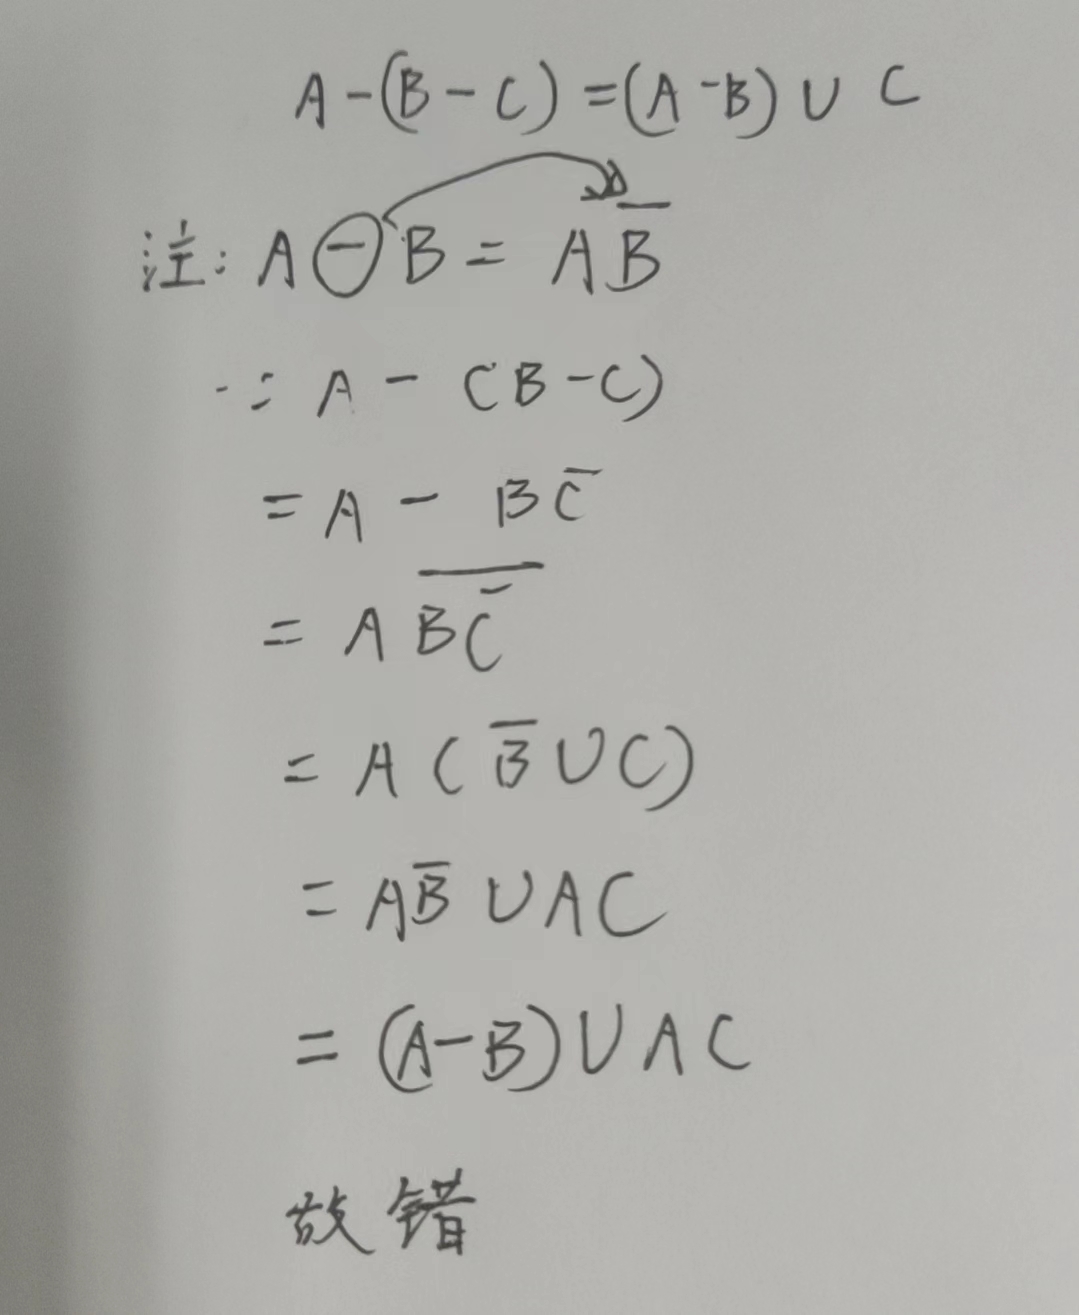 A-(B-C)=(A-B)∪C
注: A⊖B = AB̅
∵ A - (B-C)
= A - BC̅
= A \overline{BC̅}
= A(B̅∪C)
= AB̅∪AC
= (A-B)∪AC
故错